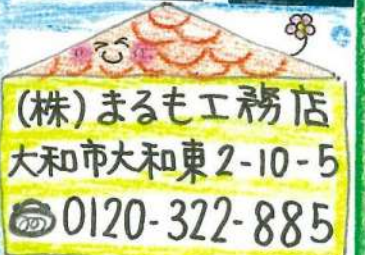 (株)まるも工務店
大和市大和東2-10-5
☎0120-322-885